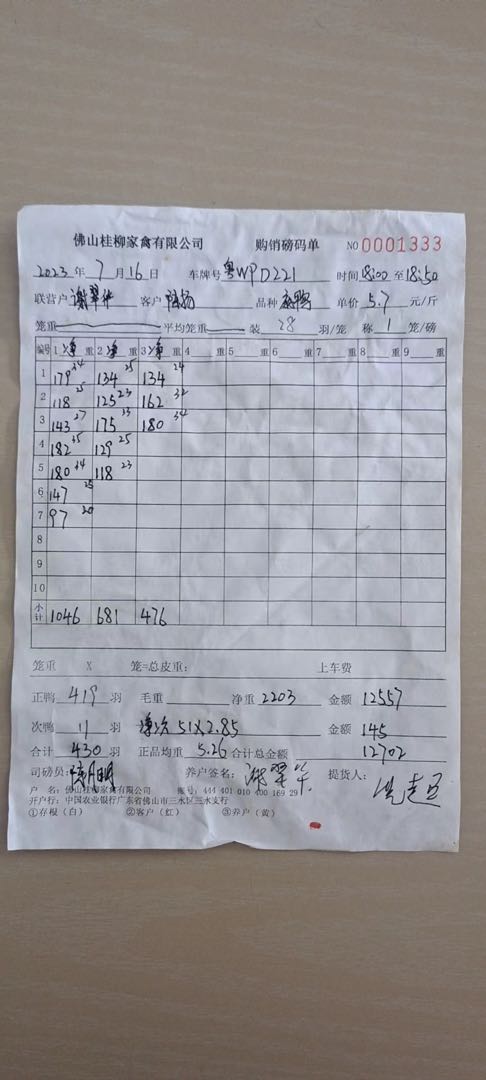 佛山桂柳家禽有限公司 购销磅码单 NO 0001333
2023 年 7 月 16 日 车牌号 粤WPD221 时间 18:00 至 18:50
联营户 谢翠华 客户 品种 单价 5.7 元/斤
笼重 平均笼重 装 28 羽/笼 称 1 笼/磅
编号 1 净 重 2 净 重 3 净 重 4 重 5 重 6 重 7 重 8 重 9 重
1 179 34 134 25 134 24
2 118 25 125 23 162 32
3 143 27 175 33 180 34
4 182 35 129 25
5 180 34 118 23
6 147 25
7 97 20
8
9
10
小计 1046 681 476
笼重 X 笼=总皮重: 上车费
正鸭 419 羽 毛重 净重 2203 金额 12557
次鸭 11 羽 净次 51X2.85 金额 145
合计 430 羽 正品均重 5.26 合计总金额 12702
司磅员: 养户签名: 谢翠华 提货人:
户 名: 佛山桂柳家禽有限公司 账号: 444 401 010 400 169 29
开户行: 中国农业银行广东省佛山市三水区三水支行
①存根(白) ②客户(红) ③养户(黄)